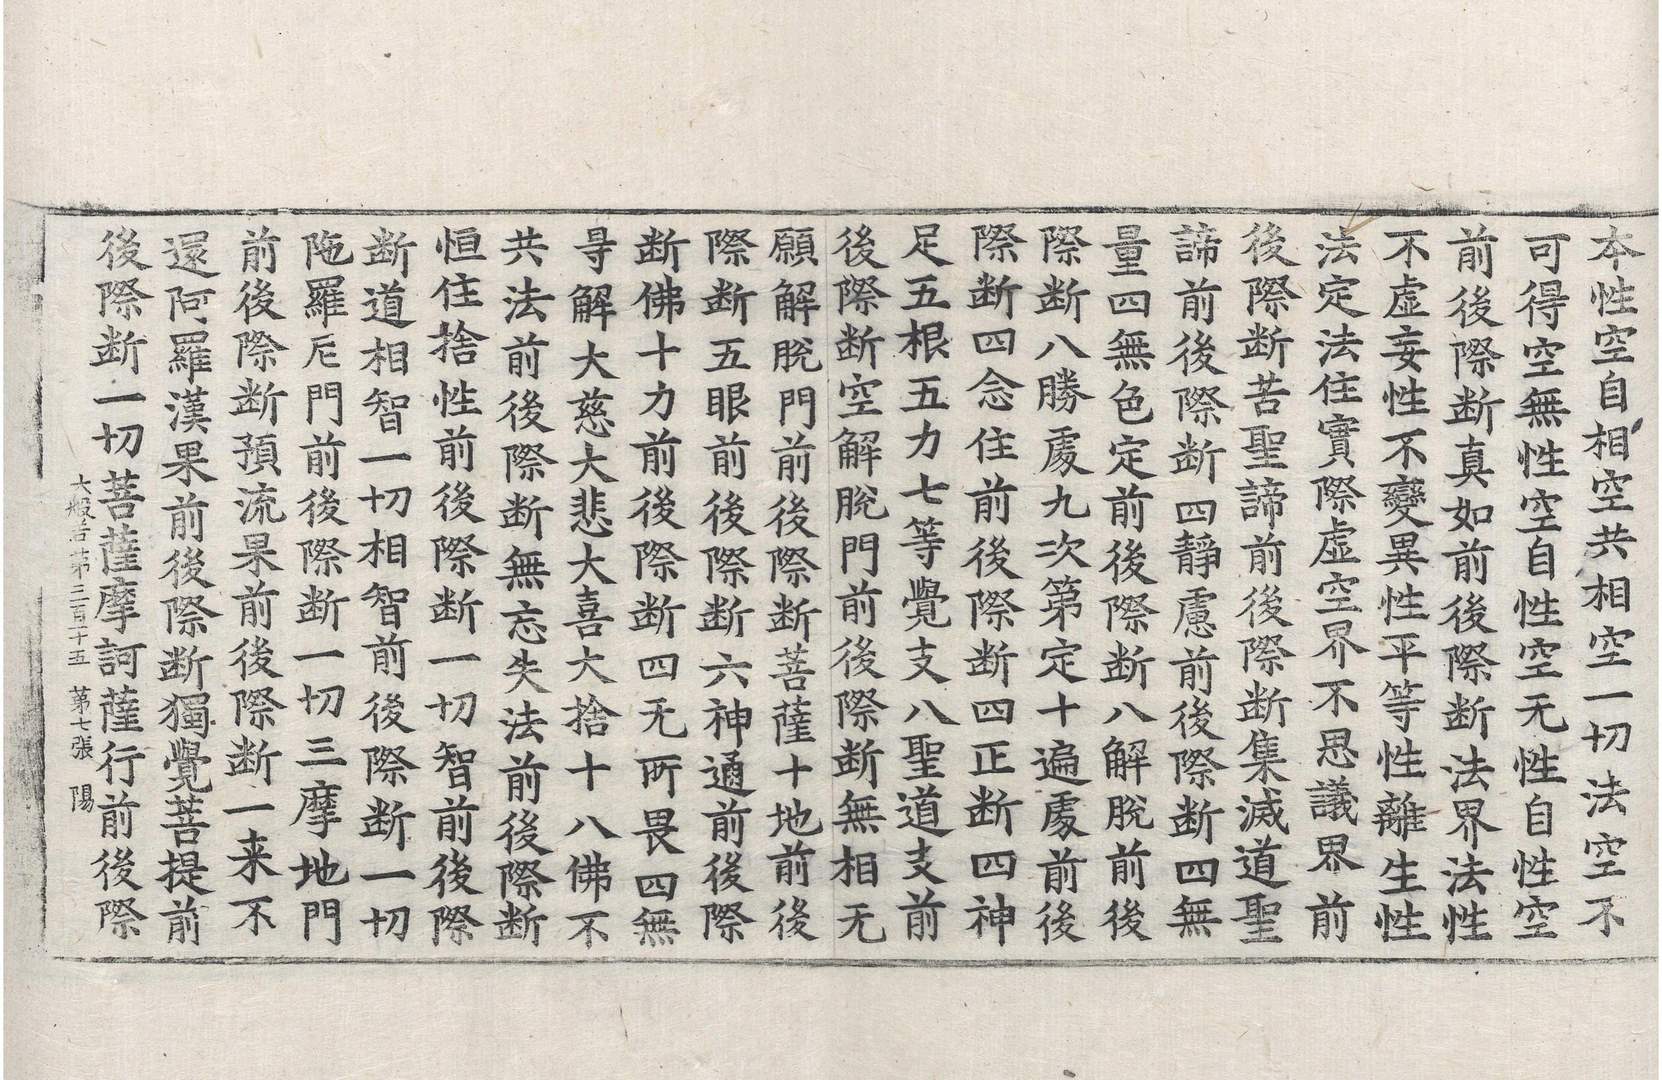 本性空自相空共相空一切法空不
可得空無性空自性空无性自性空
前後際断真如前後際断法界法性
不虛妄性不變異性平等性離生性
法定法住實際虛空界不思議界前
後際断苦聖諦前後際断集滅道聖
諦前後際断四靜慮前後際断四無
量四無色定前後際断八解脫前後
際断八勝處九次第定十遍處前後
際断四念住前後際断四正断四神
足五根五力七等覺支八聖道支前
後際断空解脫門前後際断無相无
願解脫門前後際断菩薩十地前後
際断五眼前後際断六神通前後際
断佛十力前後際断四无所畏四無
㝵解大慈大悲大喜大捨十八佛不
共法前後際断無忘失法前後際断
恒住捨性前後際断一切智前後際
断道相智一切相智前後際断一切
陁羅尼門前後際断一切三摩地門
前後際断預流果前後際断一来不
還阿羅漢果前後際断獨覺菩提前
後際断一切菩薩摩訶薩行前後際
大般若第三百十五 第七張 陽